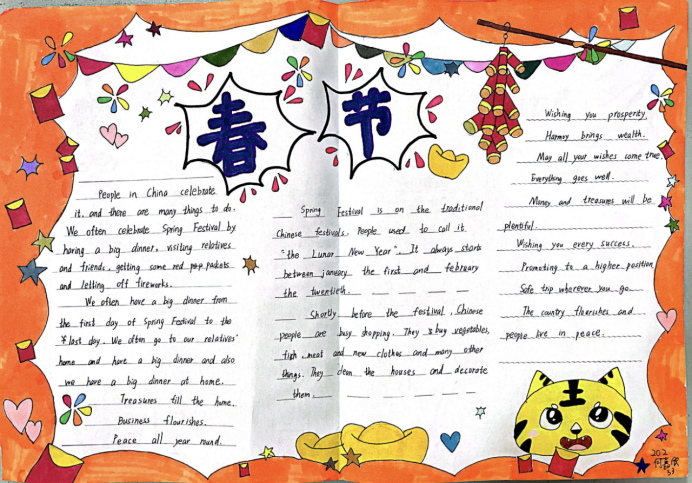 春节
People in China celebrate
it, and there are many things to do.
We often celebrate Spring Festival by
having a big dinner, visiting relatives
and friends, getting some red packets
and letting off fireworks.
We often have a big dinner from
the first day of Spring Festival to the
last day. We often go to our relatives'
home and have a big dinner and also
we have a big dinner at home.
Treasures fill the home.
Business flourishes.
Peace all year round.
Spring Festival is on the traditional
Chinese festivals. People used to call it
"the Lunar New Year". It always starts
between january the first and february
the twentieth.
Shortly before the festival, Chinese
people are busy shopping. They buy vegetables,
fish, meat and new clothes and many other
things. They clean the houses and decorate
them.
Wishing you prosperity.
Harmony brings wealth.
May all your wishes come true.
Everything goes well.
Money and treasures will be
plentiful.
Wishing you every success.
Promoting to a higher position
Safe trip wherever you go
The country flourishes and
people live in peace.
王
202
何嘉欣